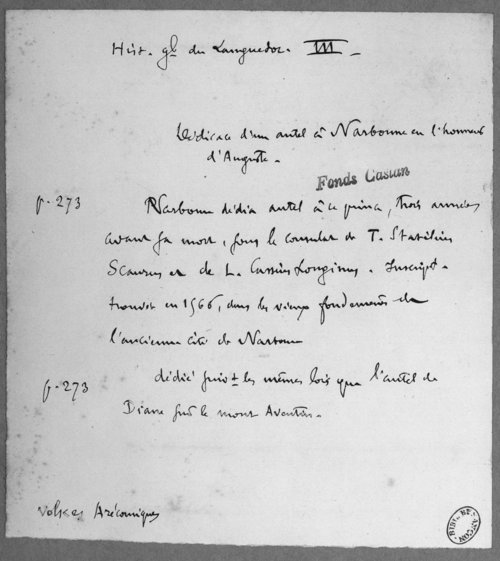 Hist. gl du Languedoc. III -
Dédicace d'un autel à Narbonne en l'honneur
d'Auguste.
Fonds Castan
p. 273
Narbonne dédia autel à ce prince, trois années
avant sa mort, sous le consulat de T. Statilius
Scaurus et de L. Cassius Longinus. Inscript.
trouvée en 1566, dans les vieux fondements de
l'ancienne cité de Narbonne
p. 273
dédié suivt les mêmes lois que l'autel de
Diane sur le mont Aventin.
Volskes Arécomiques
BIBL. BESANÇON